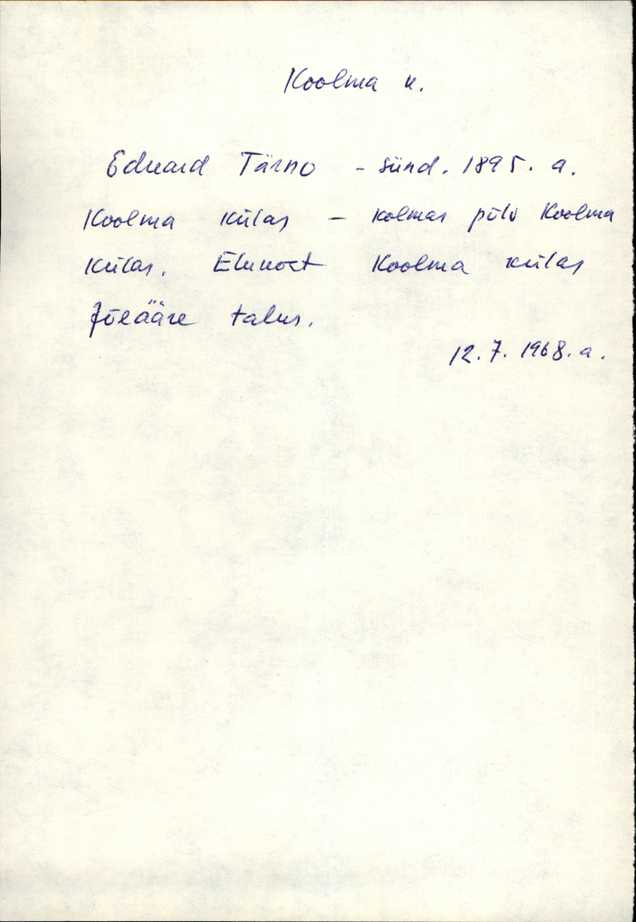 Koolma k.
Eduard Tärno - sünd. 1895. a.
Koolma külas - kolmas põlv Koolma
külas. Elukoht Koolma külas
Jõeääre talus.
12.7.1968.a.